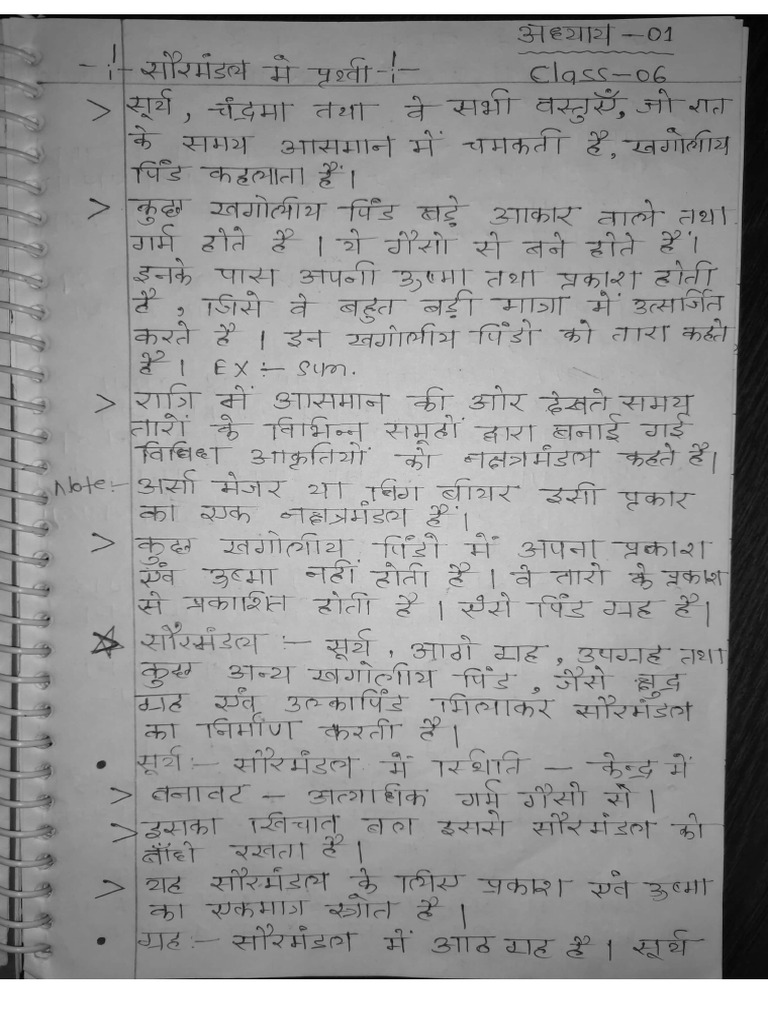 अध्याय -01
-!- सौरमंडल में पृथ्वी -!-
Class-06
> सूर्य, चंद्रमा तथा वे सभी वस्तुएँ, जो रात
के समय आसमान में चमकती है, खगोलीय
पिंड कहलाता हैं।
> कुछ खगोलीय पिंड बड़े आकार वाले तथा
गर्म होते है। ये गैसो से बने होते हैं।
इनके पास अपनी ऊष्मा तथा प्रकाश होती
है, जिसे वे बहुत बड़ी मात्रा में उत्सर्जित
करते है। इन खगोलीय पिंडो को तारा कहते
है। EX :- Sun.
> रात्रि में आसमान की ओर देखते समय
तारों के विभिन्न समूहों द्वारा बनाई गई
विविध आकृतियों को नक्षत्रमंडल कहते है।
Note:- अर्सा मेजर या बिग बीयर इसी प्रकार
का एक नक्षत्रमंडल हैं।
> कुछ खगोलीय पिंडो में अपना प्रकाश
एवं ऊष्मा नहीं होती है। वे तारो के प्रकाश
से प्रकाशित होती है। ऐसे पिंड ग्रह है।
☆ सौरमंडल :- सूर्य, आठो ग्रह, उपग्रह तथा
कुछ अन्य खगोलीय पिंड, जैसे क्षुद्र
ग्रह एवं उल्कापिंड मिलाकर सौरमंडल
का निर्माण करती है।
• सूर्य :- सौरमंडल में स्थिति - केन्द्र में
> बनावट - अत्याधिक गर्म गैसो से।
> इसका खिंचाव बल इससे सौरमंडल को
बाँधे रखता है।
> यह सौरमंडल के लिए प्रकाश एवं ऊष्मा
का एकमात्र स्त्रोत है।
• ग्रह :- सौरमंडल में आठ ग्रह है। सूर्य